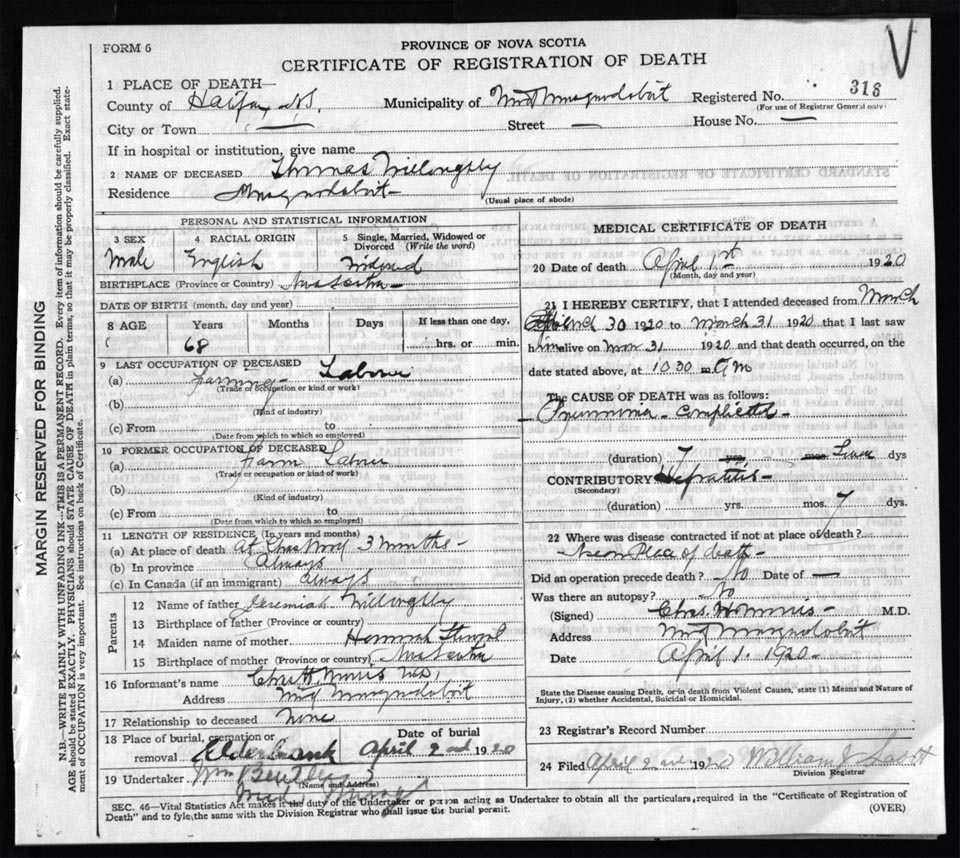 FORM 6
PROVINCE OF NOVA SCOTIA
CERTIFICATE OF REGISTRATION OF DEATH
1 PLACE OF DEATH—
County of Halifax N.S. Municipality of Mid Musquodoboit Registered No. 318
(For use of Registrar General only)
City or Town — Street — House No. —
If in hospital or institution, give name
2 NAME OF DECEASED Thomas Willoughby
Residence Musquodoboit (Usual place of abode)
PERSONAL AND STATISTICAL INFORMATION
3 SEX 4 RACIAL ORIGIN 5 Single, Married, Widowed or Divorced (Write the word)
Male English Widowed
BIRTHPLACE (Province or Country) Nova Scotia
DATE OF BIRTH (month, day and year)
8 AGE Years Months Days If less than one day,
68 hrs. or min.
9 LAST OCCUPATION OF DECEASED
(a) Farming Labour
(Trade or occupation or kind or work)
(b)
(Kind of industry)
(c) From to
(Date from which to which so employed)
10 FORMER OCCUPATION OF DECEASED
(a) Farm Labour
(Trade or occupation or kind of work)
(b)
(Kind of industry)
(c) From to
(Date from which to which so employed)
11 LENGTH OF RESIDENCE (In years and months)
(a) At place of death At 3 months
(b) In province always
(c) In Canada (if an immigrant) always
Parents
12 Name of father Jeremiah Willoughby
13 Birthplace of father (Province or country)
14 Maiden name of mother Hannah
15 Birthplace of mother (Province or country) Nova Scotia
16 Informant's name Chas. H. Morris M.D.
Address Mid Musquodoboit
17 Relationship to deceased None
18 Place of burial, cremation or removal Elderbank Date of burial April 2nd 1920
19 Undertaker Wm
(Name and Address)
MEDICAL CERTIFICATE OF DEATH
20 Date of death April 1st 1920
(Month, day and year)
21 I HEREBY CERTIFY, that I attended deceased from March
30 1920 to March 31 1920 that I last saw
him alive on Mar 31 1920 and that death occurred, on the
date stated above, at 10 30 m. A m
The CAUSE OF DEATH was as follows:
Pneumonia
(duration) 7 yrs. mos. dys
CONTRIBUTORY
(Secondary)
(duration) yrs. mos. 7 dys.
22 Where was disease contracted if not at place of death?
Near Place of death
Did an operation precede death? No Date of —
Was there an autopsy? No
(Signed) Chas. H. Morris M.D.
Address Mid Musquodoboit
Date April 1. 1920
State the Disease causing Death, or in death from Violent Causes, state (1) Means and Nature of
Injury, (2) whether Accidental, Suicidal or Homicidal.
23 Registrar's Record Number
24 Filed April 2nd 1920 William J.
Division Registrar
SEC. 46—Vital Statistics Act makes it the duty of the Undertaker or person acting as Undertaker to obtain all the particulars required in the "Certificate of Registration of
Death" and to fyle the same with the Division Registrar who shall issue the burial permit. (OVER)
MARGIN RESERVED FOR BINDING
N.B.—WRITE PLAINLY WITH UNFADING INK—THIS IS A PERMANENT RECORD. Every item of information should be carefully supplied.
AGE should be stated EXACTLY. PHYSICIANS should STATE CAUSE OF DEATH in plain terms, so that it may be properly classified. Exact state-
ment of OCCUPATION is very important. See instructions on back of Certificate.